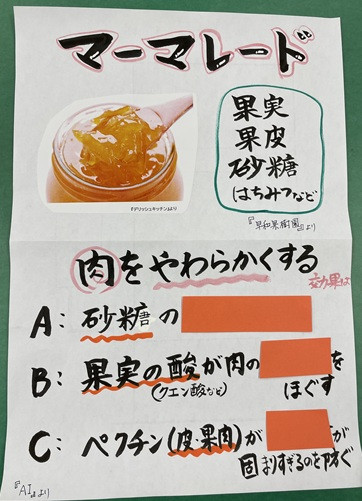 マーマレード
果実
果皮
砂糖
はちみつなど
『デリッシュキッチン』より
『早和果樹園』より
肉をやわらかくする
効果は
A: 砂糖の
B: 果実の酸が肉の を
(クエン酸など) ほぐす
C: ペクチン(皮・果肉)が が
固まりすぎるのを防ぐ
『AI』より